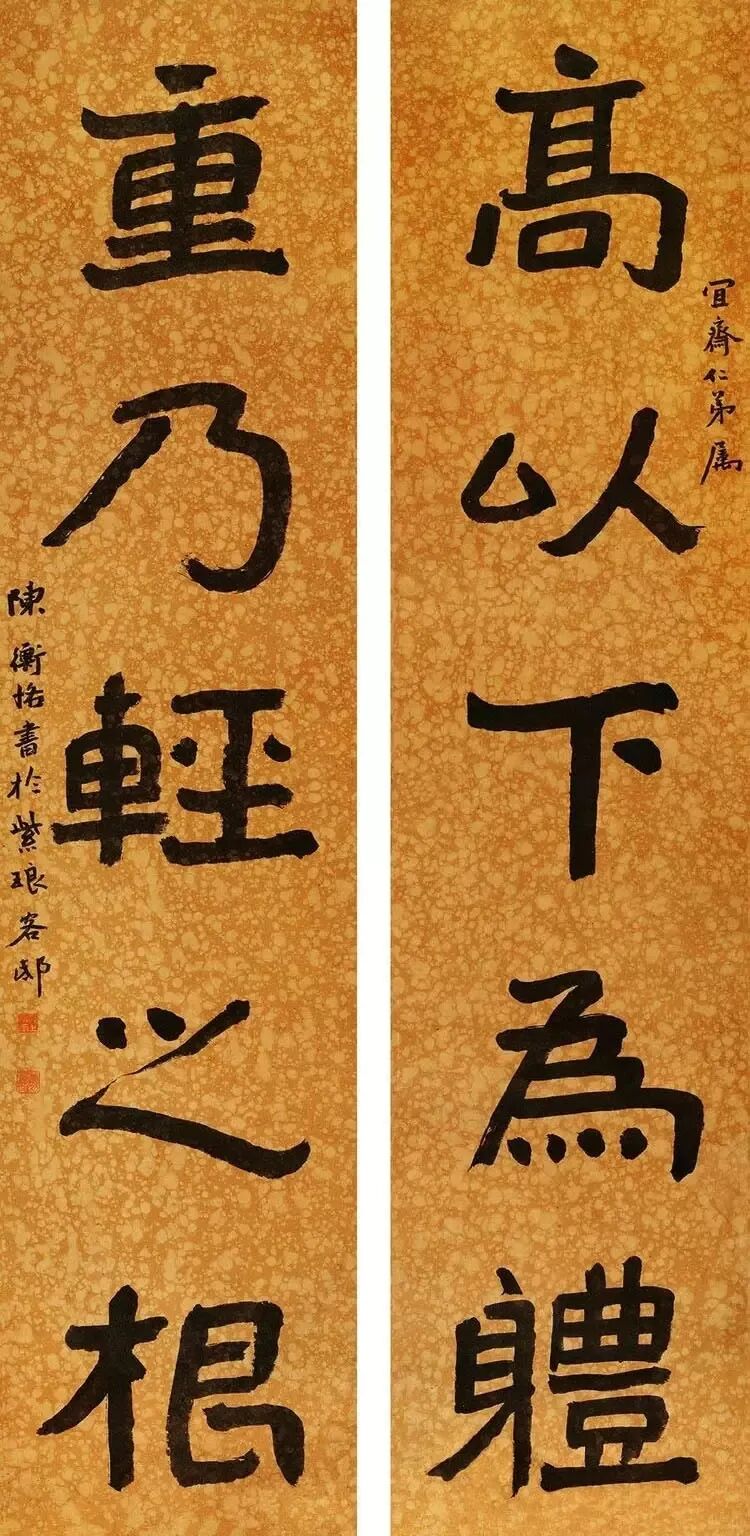 高以下為軆
宜齋仁弟属
重乃輕之根
陳衡恪書於紫琅客邸